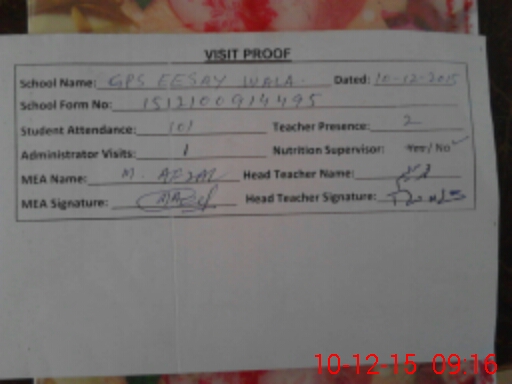 VISIT PROOF
School Name: GPS EESAY WALA Dated: 10-12-2015
School Form No: 1512100914495
Student Attendance: 101 Teacher Presence: 2
Administrator Visits: 1 Nutrition Supervisor: Yes/No
MEA Name: M. AFZAL Head Teacher Name:
MEA Signature: Head Teacher Signature:
10-12-15 09:16